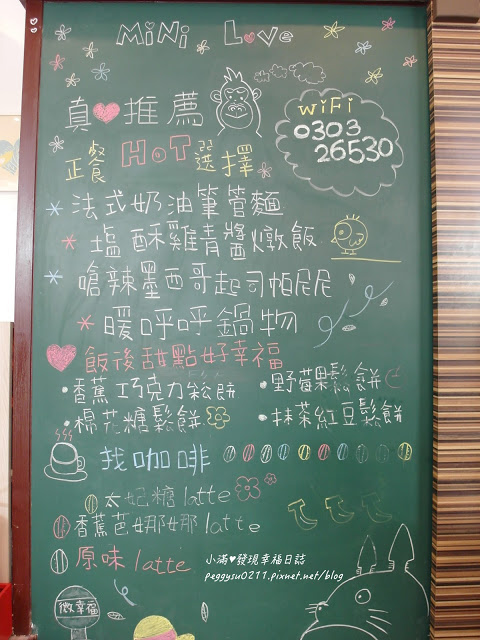 MiNi Love
真♥推薦
WiFi
0303
26530
正餐 HOT 選擇
法式奶油筆管麵
塩酥雞青醬燉飯
嗆辣墨西哥起司帕尼尼
暖呼呼鍋物
飯後甜點好幸福
香蕉巧克力鬆餅
野莓果鬆餅
棉花糖鬆餅
抹茶紅豆鬆餅
找咖啡
太妃糖latte
香蕉芭娜娜latte
原味latte
小滿♥發現幸福日誌
peggysu0211.pixnet.net/blog
微幸福